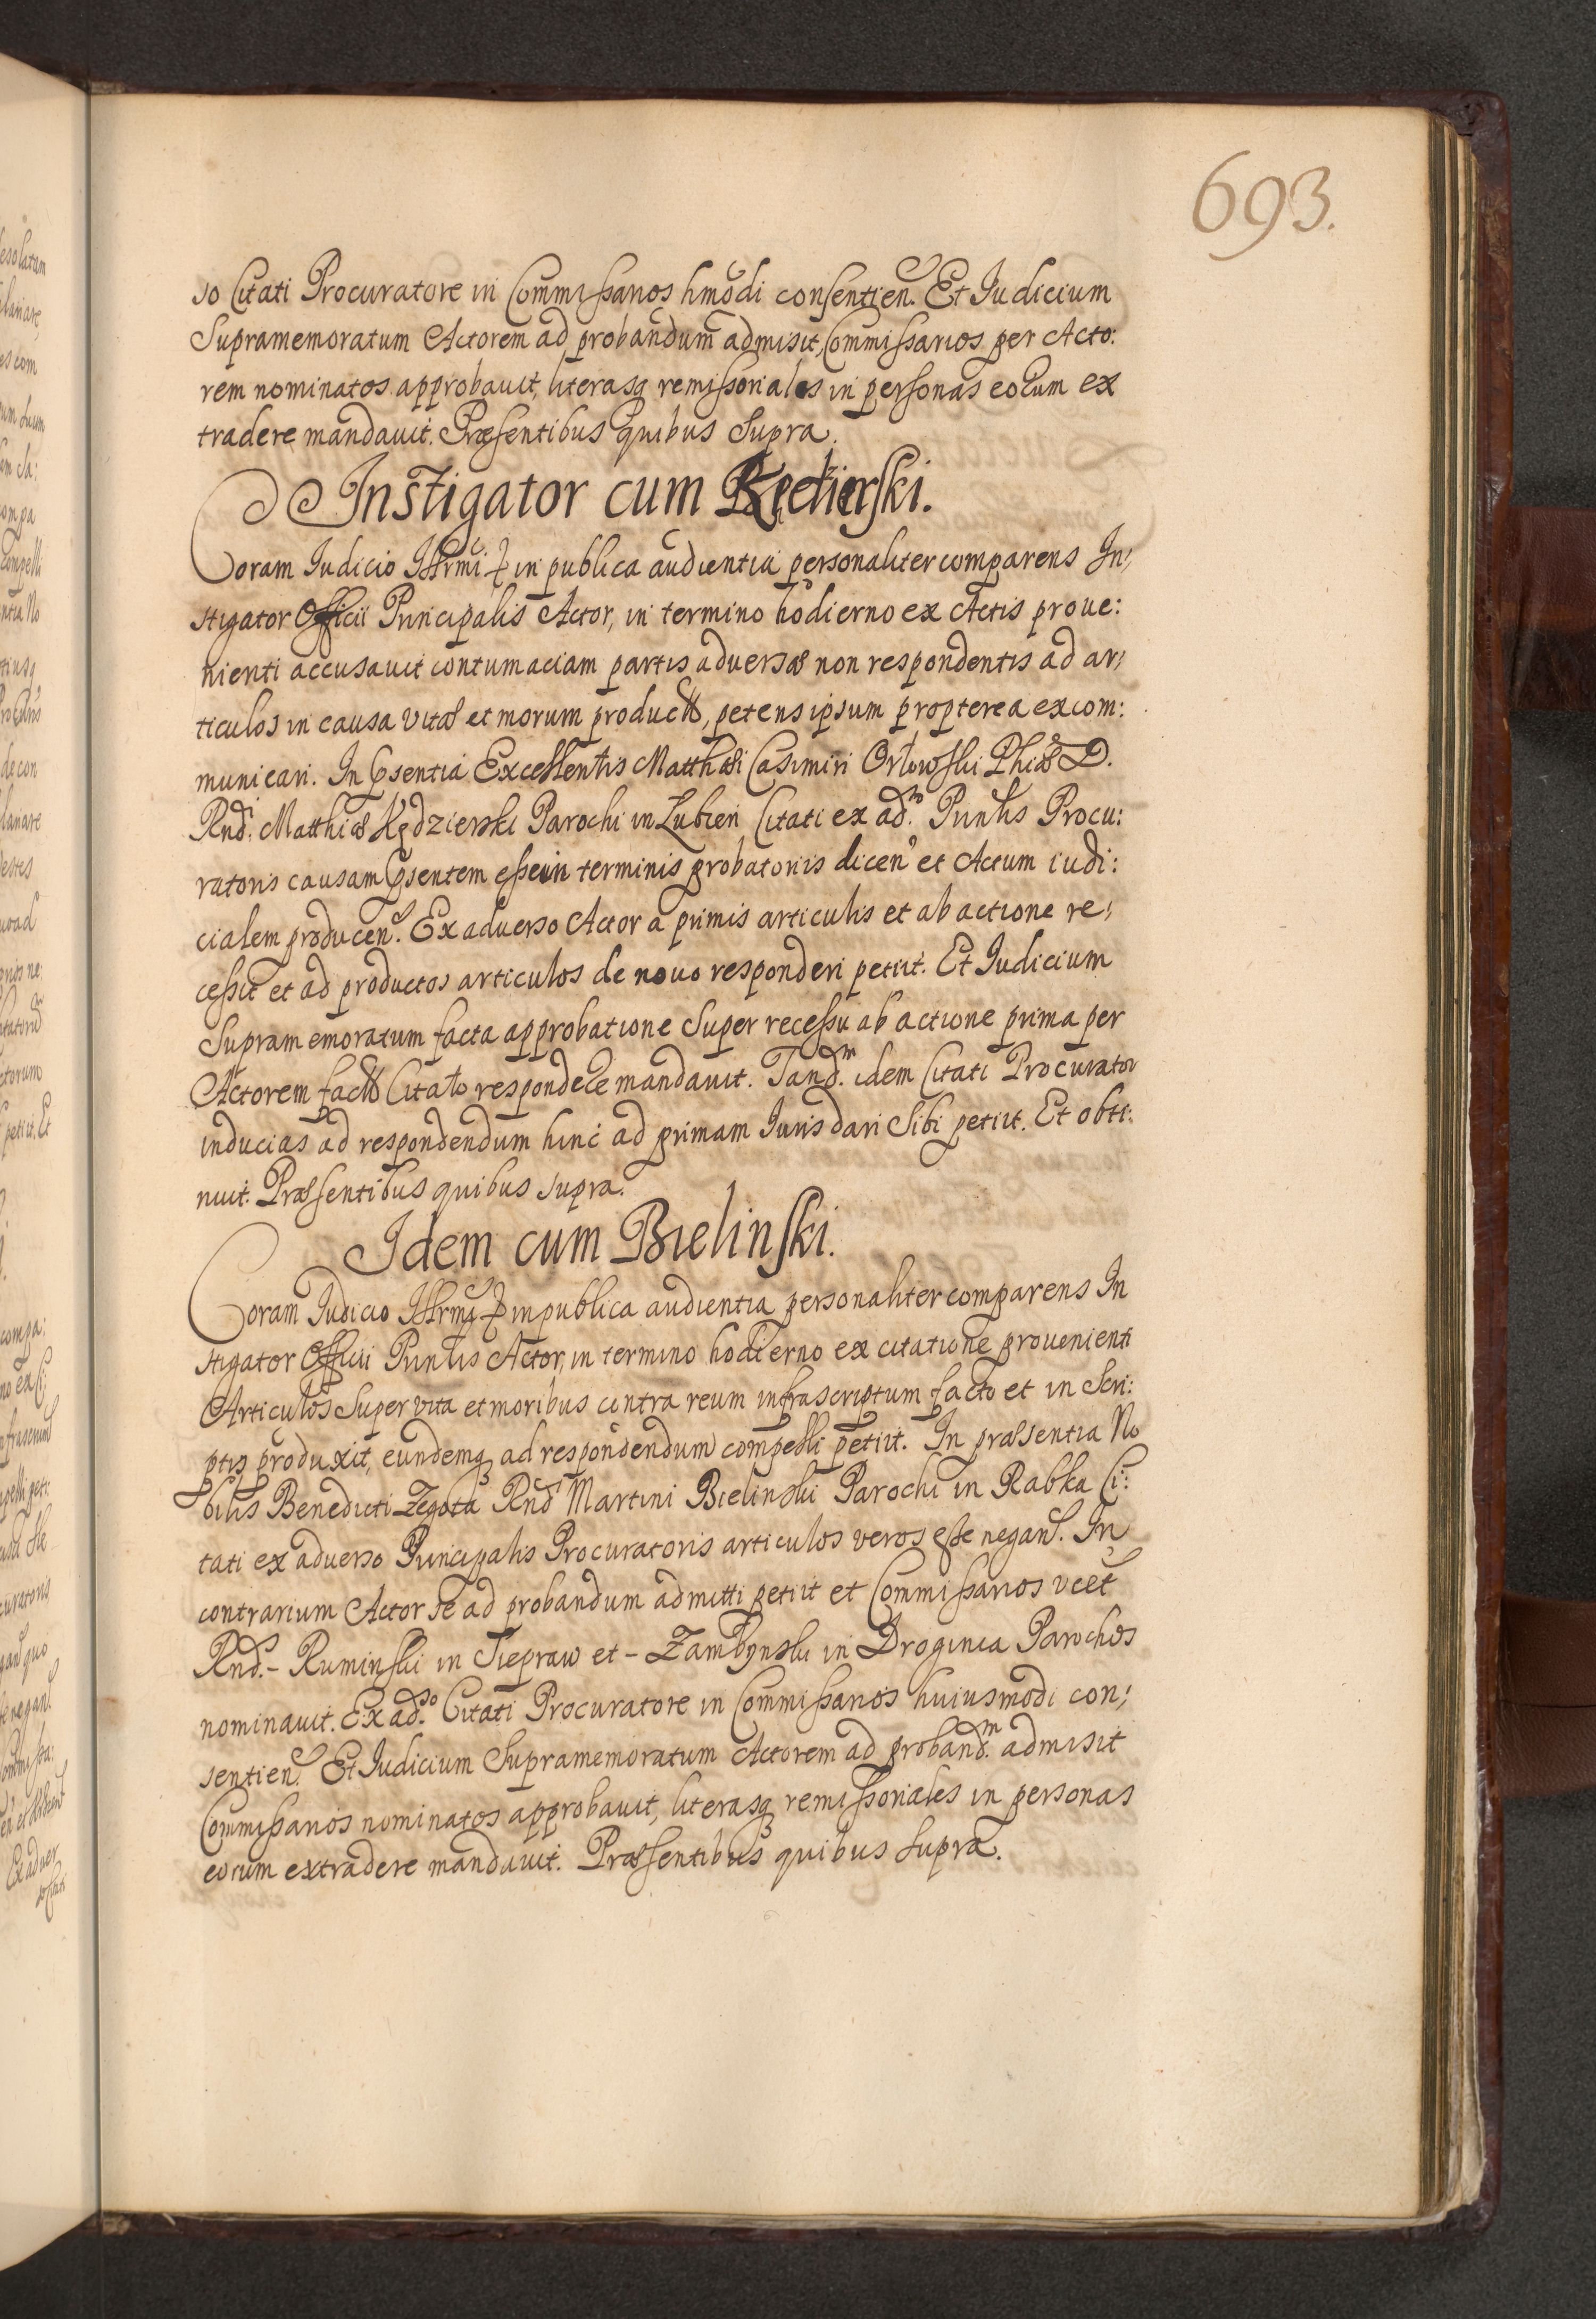 693.
so Citati Procuratore in Commissarios hmõdi consentien. Et Iudicium
Supramemoratum Actorem ad probandum admisit, Commissarios per Acto:
rem nominatos approbauit, literasq remissoriales in personas eorum ex
tradere mandauit. Præsentibus quibus Supra.
Instigator cum Kędzierski.
Coram Iudicio Illrmi in publica audientia personaliter comparens In:
stigator Officii Principalis Actor, in termino hodierno ex Actis proue:
nienti accusauit contumaciam partis aduersæ non respondentis ad ar:
ticulos in causa vitæ et morum product, petens ipsum propterea excom:
municari. In Psentia Excellentis Matthæi Casimiri Orłowski Phiæ D.
Rndi Matthiæ Kędzierski Parochi in Lubien Citati ex ad. Prinlis Procu:
ratoris causam Psentem esse in terminis probatoriis dicen et Actum iudi:
cialem producen. Ex aduerso Actor a primis articulis et ab actione re:
cessit et ad productos articulos de nouo responderi petiit. Et Iudicium
Supramemoratum facta approbatione Super recessu ab actione prima per
Actorem fact Citato respondere mandauit. Tand.m idem Citati Procurator
inducias ad respondendum hinc ad primam Iuris dari Sibi petiit. Et obti:
nuit. Præsentibus quibus supra.
Idem cum Bielinski.
Coram Iudicio Illrmi in publica audientia personaliter comparens In
stigator Officii Prinlis Actor, in termino hodierno ex citatione prouenienti
Articulos Super vita et moribus contra reum infrascriptum facto et in Scri:
ptis produxit, eundemq ad respondendum compelli petiit. In præsentia No
bilis Benedicti Zegota Rnd Martini Bielinski Parochi in Rabka Ci:
tati ex aduerso Principalis Procuratoris articulos veros esse negan. In
contrarium Actor se ad probandum admitti petiit et Commissarios vcet
Rnd. - Ruminski in Siepraw et - Zambrynski in Droginia Parochos
nominauit. Ex ad.so Citati Procuratore in Commissarios huiusmodi con:
sentien. Et Iudicium Supramemoratum Actorem ad proband.m admisit
Commissarios nominatos approbauit, literasq remissoriales in personas
eorum extradere mandauit. Præsentibus quibus Supra.